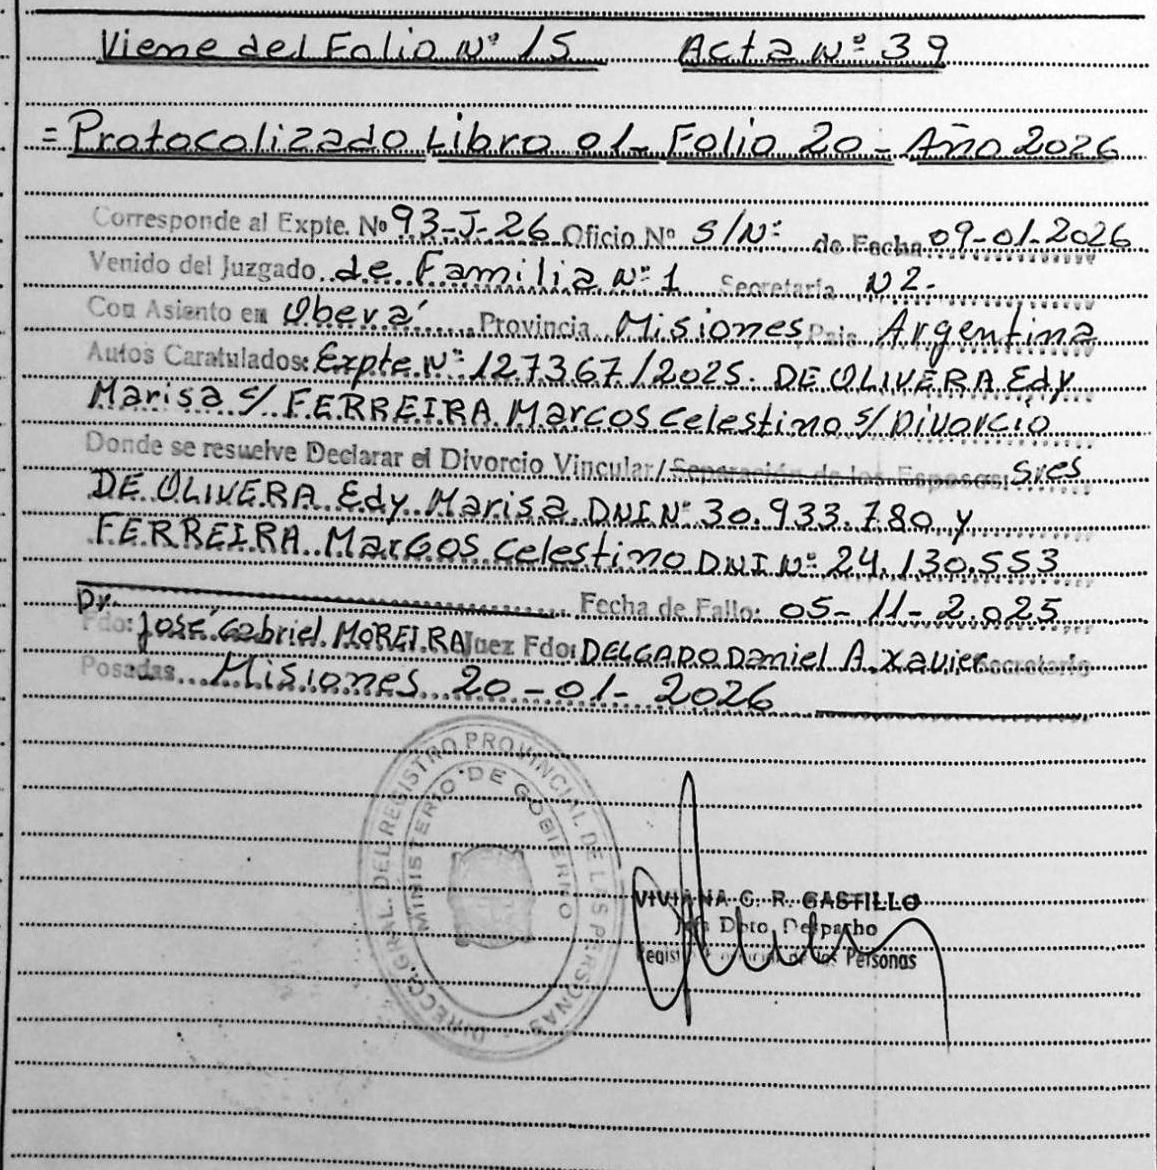 Viene del Folio Nº 15 Acta Nº 39
= Protocolizado Libro 01- Folio 20 - Año 2026
Corresponde al Expte. Nº 93-J-26 Oficio Nº S/Nº de Fecha 09-01-2026
Venido del Juzgado de Familia Nº 1 Secretaria N2.
Con Asiento en Oberá Provincia Misiones Pais Argentina
Autos Caratulados: Expte Nº 127367/2025. DE OLIVERA Edy
Marisa c/ FERREIRA Marcos Celestino s/ Divorcio
Donde se resuelve Declarar el Divorcio Vincular/Separación de los Esposos: Sres
DE OLIVERA Edy Marisa DNI Nº 30.933.780 y
FERREIRA Marcos Celestino DNI Nº 24.130.553
Fecha de Fallo: 05-11-2.025
Dr.
Fdo: José Gabriel MOREIRA Juez Fdo: DELGADO Daniel A. Xavier Secretario
Posadas Misiones 20-01-2026
DIRECC. GRAL. DEL REGISTRO PROVINCIAL DE LAS PERSONAS
MINISTERIO DE GOBIERNO
VIVIANA G. R. CASTILLO
Jefa Dpto. Despacho
Personas